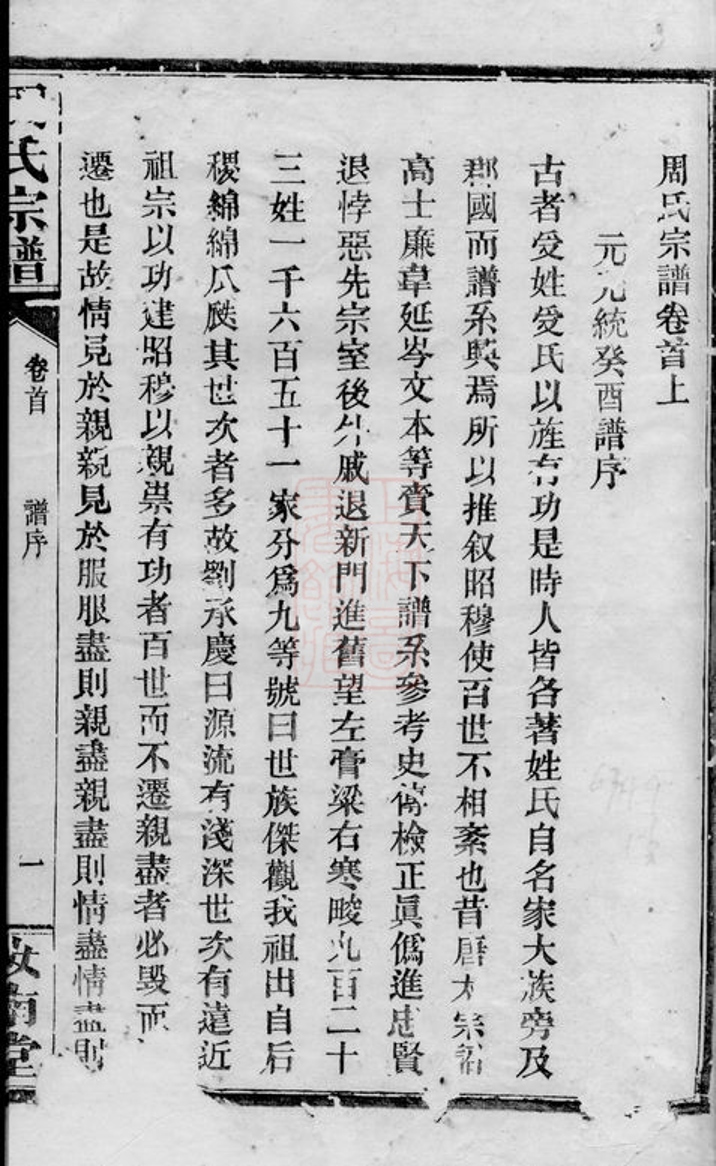 周氏宗譜卷首上
元元統癸酉譜序
古者受姓受氏以旌有功是時人皆各著姓氏自名家大族旁及
郡國而譜系興焉所以推叙昭穆使百世不相紊也昔唐太宗詔
高士廉韋延岑文本等賫天下譜系參考史傳檢正眞僞進忠賢
退悖惡先宗室後外戚退新門進舊望左膏粱右寒畯九百二十
三姓一千六百五十一家分爲九等號曰世族傑觀我祖出自后
稷綿綿瓜瓞其世次者多故劉承慶曰源流有淺深世次有遠近
祖宗以功建昭穆以親祟有功者百世而不遷親盡者必毀而
遷也是故情見於親親見於服服盡則親盡親盡則情盡情盡則
氏宗譜
卷首
譜序
一
汝南堂